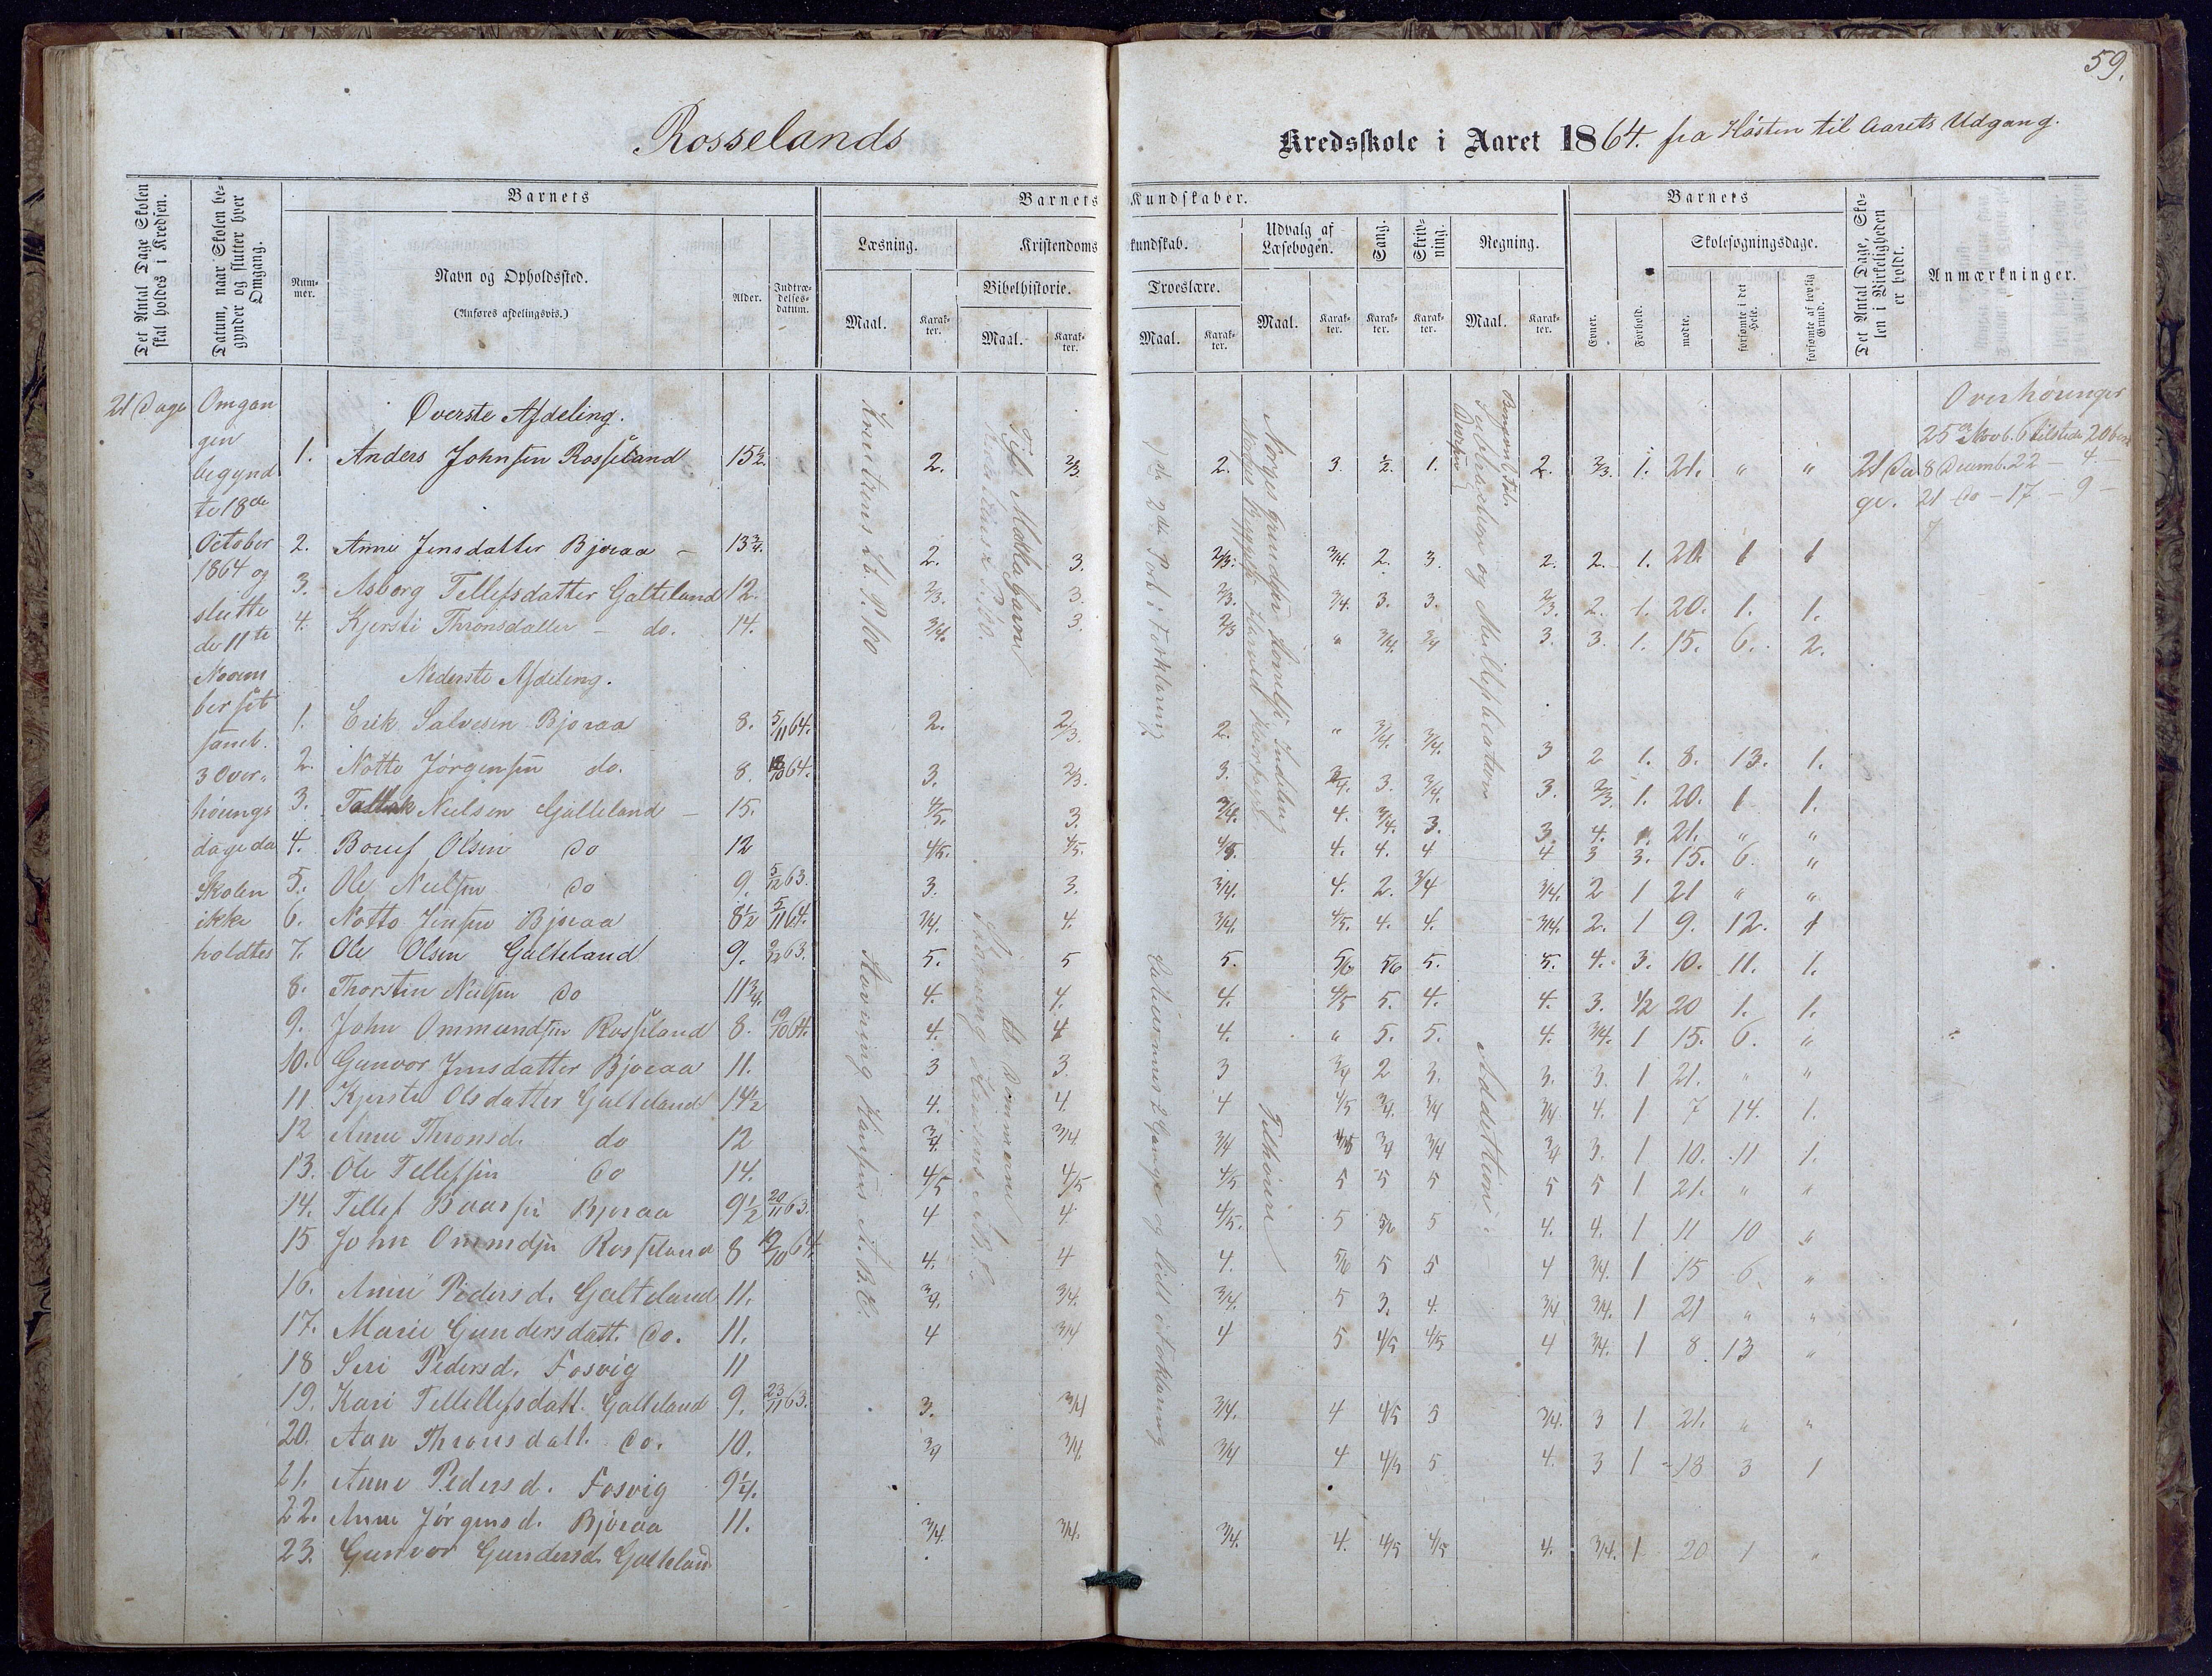 59.
Rosselands
Kredsskole i Aaret 1864. fra Høsten til Aarets Udgang.
Det Antal Dage Skolen skal holdes i Kredsen.
Datum, naar Skolen begynder og slutter hver Omgang.
Barnets
Nummer.
Navn og Opholdssted.
(Anføres afdelingsvis.)
Alder.
Indtrædelsesdatum.
Barnets Kundskaber.
Læsning.
Maal.
Karakter.
Kristendomskundskab.
Bibelhistorie.
Maal.
Karakter.
Troeslære.
Maal.
Karakter.
Udvalg af Læsebogen.
Maal.
Karakter.
Sang.
Karakter.
Skrivning.
Karakter.
Regning.
Maal.
Karakter.
Barnets
Evner.
Forhold.
Skolesøgningsdage.
mødte.
forsømte i det Hele.
forsømte af lovlig Grund.
Det Antal Dage, Skolen i Virkeligheden er holdt.
Anmærkninger.
21 Dage
Omgan
gen
begynd
te 18de
October
1864 og
slutte
de 11te
Novem
ber
3 Over
hørings
dage da
Skolen
ikke
holdtes
Øverste Afdeling.
1. Anders Johnsen Rosseland 15½ 2. 2/3 2. 3. ½ 1. 2. 2/3. 1. 21. " "
2. Anne Jensdatter Bjoraa 13¾. 2. 3. 2/3. 3/4. 2. 3. 2. 2. 1. 20 1 1
3. Asborg Tellefsdatter Galteland 12. 2/3. 3. 2/3. 3/4. 3. 3. 2/3. 2. 1. 20. 1. 1.
4. Kjersti Thronsdatter do. 14. 3/4. 3. 2/3 " 3/4. 3/4 3. 3. 1. 15. 6. 2.
Nederste Afdeling.
1. Erik Salvesen Bjoraa 8. 5/11 64. 2. 2/3. 2. " 3/4. 3/4. 3 2 1. 8. 13. 1.
2. Notto Jørgensen do. 8. 18/10 64. 3. 2/3. 3. 3/4. 3. 3/4. 3. 2/3. 1. 20. 1 1.
3. Tallak Nielsen Galteland 15. 4/5. 3. 3/4. 4. 3/4. 3. 3. 4. 1. 21. " "
4. Olsen do 12 4/5. 4/5. 4/5. 4. 4. 4 4 3 3. 15. 6. "
5. Ole Nielsen do 9. 5/12 63. 3. 3. 3/4. 4. 2. 3/4 3/4. 2 1 21 " "
6. Notto Jensen Bjoraa 8½ 5/11 64. 3/4. 4. 3/4. 4/5. 4. 4. 3/4. 2. 1 9. 12. 1
7. Ole Olsen Galteland 9. 2/12 63. 5. 5 5. 5/6. 5/6 5. 5. 4. 3. 10. 11. 1.
8. Thorsten Nielsen do 11¾. 4. 4. 4. 4/5 5. 4. 4. 3. ½ 20 1. 1.
9. John Ommundsen Rosseland 8. 19/10 64. 4. 4 4. " 5. 5. 4. 3/4. 1 15. 6. "
10. Gunvor Jensdatter Bjoraa 11. 3 3. 3 3/4 2 3. 3. 3. 1 21. " "
11 Kjerste Olsdatter Galteland 14½ 4. 4. 4 4/5 3/4. 3/4 3/4 4. 1 7 14. 1.
12 Anne Thronsd. do 12 3/4. 3/4. 3/4 4/5 3/4 3/4 3/4 3. 1 10. 11 1.
13. Ole Tellefsen do 14. 4/5 4/5 4/5 5 5 5 5 5 1 21. " "
14. Tellef Baarsen Bjoraa 9½ 20/11 63. 4 4 4/5. 5 5/6 5 4. 4. 1 11 10 "
15 John Ommdsn Rosseland 8 19/10 64. 4. 4 4. 5/6 5 5 4 3/4. 1 15 6. "
16. Anne Pedersd. Galteland 11. 3/4. 3/4. 3/4. 5 3. 4. 3/4 3/4. 1 21 " "
17. Marie Gundersdatt. do. 11. 4 3/4 4 5 4/5 4/5 4 3/4. 1 8 13 "
18 Seri Pedersd. Fosvig 11
19. Kari Tellellefsdatt. Galteland 9. 23/11 63. 3. 3/4 3/4. 4 4/5 5 3/4. 3 1 21. " "
20. Aan Thronsdatt. do. 10. 3/4 3/4. 3/4 4 4/5 5 4. 3 1 18 3 1
21. Anne Pedersd. Fosvig 9¼.
22. Anne Jørgensd. Bjoraa 11. 3/4. 3/4. 3/4. 4. 4/5 4/5 4. 3/4. 1 20 1 "
23. Gunvor Gundersd. Galteland
Stavning A.B.C.
Norges Bebyggelse Harald Haarfagre
Tilhørere
Subtraction og Multiplication
Addition
2den Part i Forklaring
Catechismus 2 Gange og lidt i Forklaring
21 Da
ge.
Overhøringer
25de Novb. 6 tilstede 20
8 Decemb. 22 — 4 —
21 do — 17 — 9 —